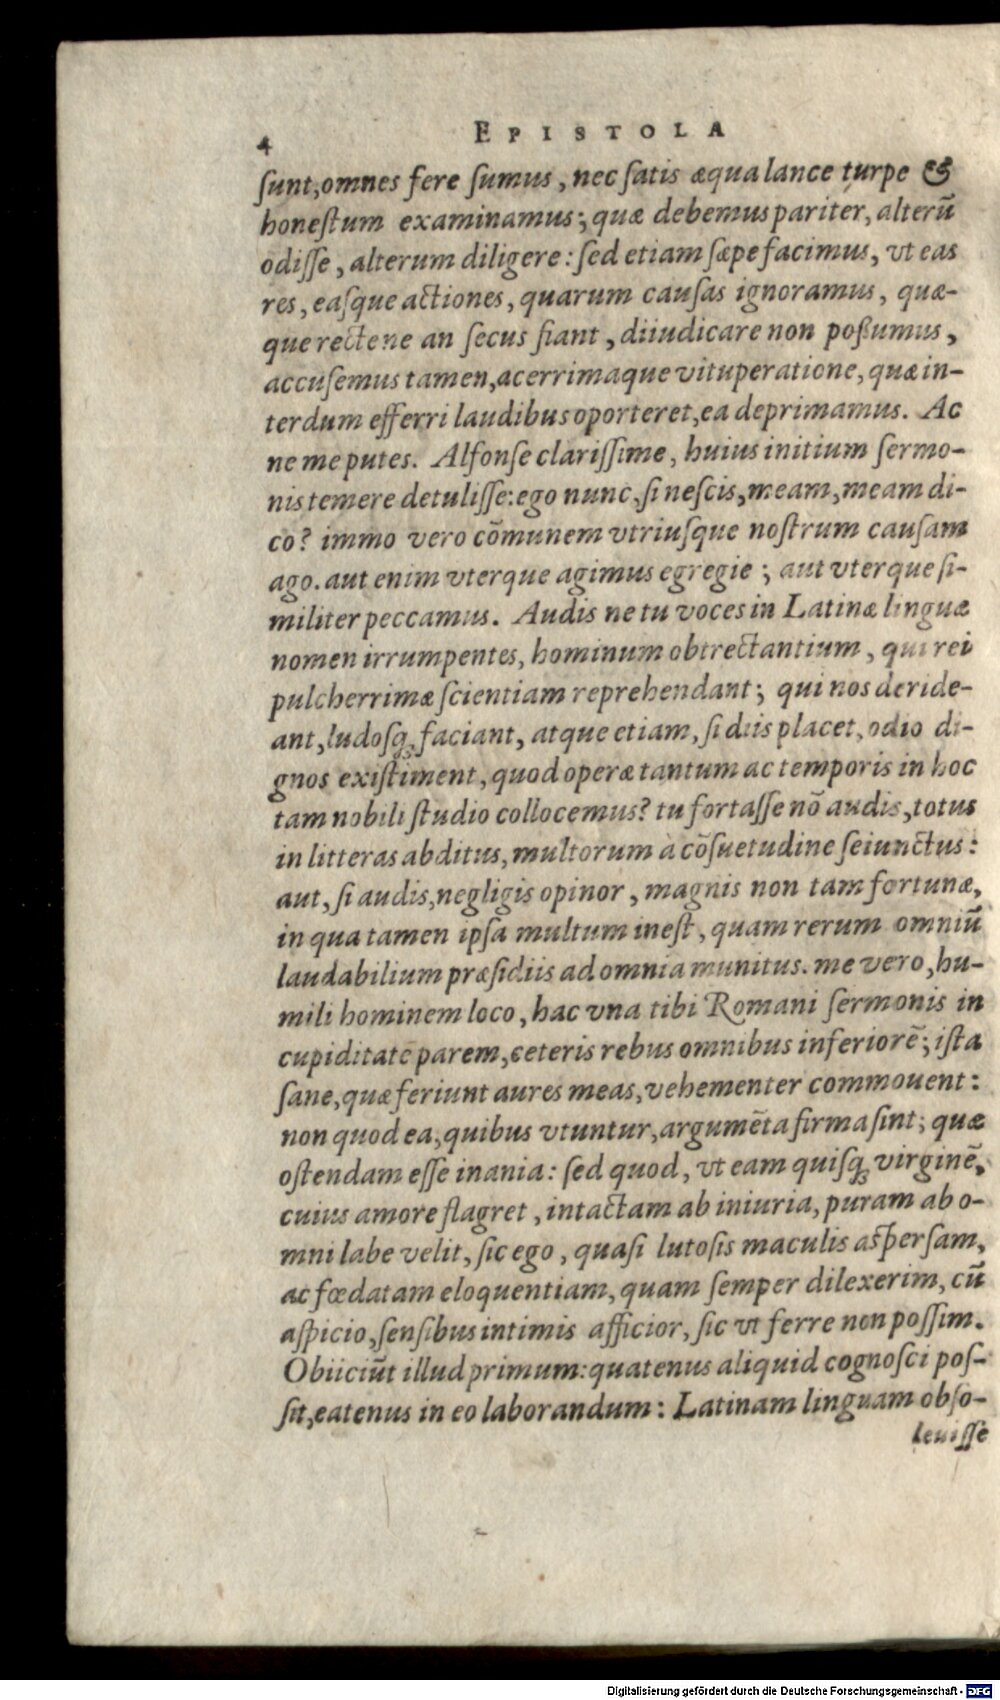 4 EPISTOLA
ſunt, omnes fere ſumus, nec ſatis æqua lance turpe &
honeſtum examinamus; quæ debemus pariter, alterū
odiſſe, alterum diligere: ſed etiam ſæpe facimus, vt eas
res, eaſque actiones, quarum cauſas ignoramus, quæ-
que rectene an ſecus fiant, diiudicare non poßumus,
accuſemus tamen, acerrimaque vituperatione, quæ in-
terdum efferri laudibus oporteret, ea deprimamus. Ac
ne me putes. Alfonſe clariſſime, huius initium ſermo-
nis temere detuliſſe: ego nunc, ſi neſcis, meam, meam di-
co? immo vero cōmunem vtriuſque noſtrum cauſam
ago. aut enim vterque agimus egregie; aut vterque ſi-
militer peccamus. Audis ne tu voces in Latinæ linguæ
nomen irrumpentes, hominum obtrectantium, qui rei
pulcherrimæ ſcientiam reprehendant; qui nos deride-
ant, ludoſq; faciant, atque etiam, ſi diis placet, odio di-
gnos exiſtiment, quod operæ tantum ac temporis in hoc
tam nobili ſtudio collocemus? tu fortaſſe nō audis, totus
in litteras abditus, multorum à cōſuetudine ſeiunctus:
aut, ſi audis, negligis opinor, magnis non tam fortunæ,
in qua tamen ipſa multum ineſt, quam rerum omniū
laudabilium præſidiis ad omnia munitus. me vero, hu-
mili hominem loco, hac vna tibi Romani ſermonis in
cupiditate parem, ceteris rebus omnibus inferiorē; iſta
ſane, quæ feriunt aures meas, vehementer commouent:
non quod ea, quibus vtuntur, argumēta firma ſint; quæ
oſtendam eſſe inania: ſed quod, vt eam quiſq; virginē,
cuius amore flagret, intactam ab iniuria, puram ab o-
mni labe velit, ſic ego, quaſi lutoſis maculis aſperſam,
ac fœdatam eloquentiam, quam ſemper dilexerim, cū
aſpicio, ſenſibus intimis afficior, ſic vt ferre non poſſim.
Obiiciūt illud primum: quatenus aliquid cognoſci poſ-
ſit, eatenus in eo laborandum: Latinam linguam obſo-
leuiſſe
Digitalisierung gefördert durch die Deutsche Forschungsgemeinschaft - DFG